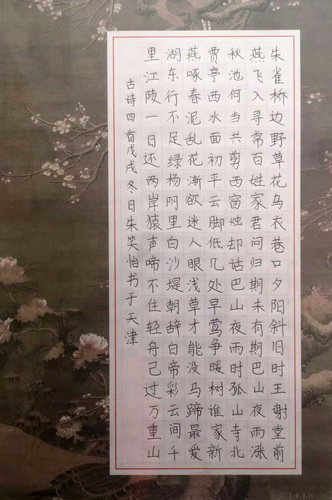 朱雀桥边野草花乌衣巷口夕阳斜旧时王谢堂前
燕飞入寻常百姓家君问归期未有期巴山夜雨涨
秋池何当共剪西窗烛却话巴山夜雨时孤山寺北
贾亭西水面初平云脚低几处早莺争暖树谁家新
燕啄春泥乱花渐欲迷人眼浅草才能没马蹄最爱
湖东行不足绿杨阴里白沙堤朝辞白帝彩云间千
里江陵一日还两岸猿声啼不住轻舟已过万重山
古诗四首戊戌冬日朱笑怡书于天津